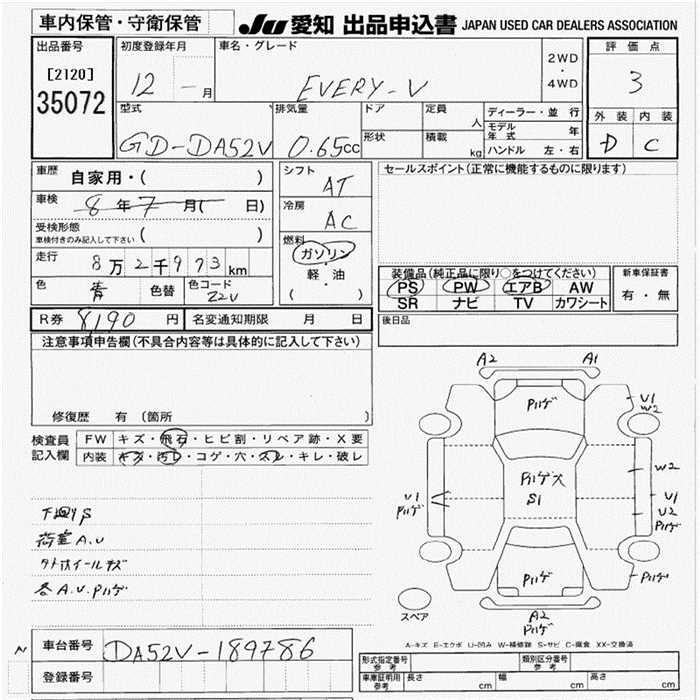 車内保管・守衛保管
JU 愛知 出品申込書 JAPAN USED CAR DEALERS ASSOCIATION
出品番号
[2120]
35072
初度登録年月
12 - 月
車名・グレード
EVERY-V
2WD
・
4WD
評価点
3
外装 内装
D C
型式
GD-DA52V
排気量
0.65cc
ドア
形状
定員
人
積載
kg
ディーラー・並行
モデル年式 年
ハンドル 左・右
車歴
自家用・( )
車検
8年7月( 日)
受検形態
車検付きのみ記入して下さい ( )
走行
8万2千973km
色
青
色替
色コード
Z2V
シフト
AT
冷房
AC
燃料
ガソリン
・
軽油
( )
セールスポイント(正常に機能するものに限ります)
装備品(純正品に限り○をつけてください)
PS PW エアB AW
SR ナビ TV カワシート
新車保証書
有・無
R券 8190 円
名変通知期限 月 日
後日品
注意事項申告欄(不具合内容等は具体的に記入して下さい)
修復歴 有 (箇所 )
検査員
記入欄
FW キズ・飛石・ヒビ割・リペア跡・X要
内装 キズ・汚レ・コゲ・穴・スレ・キレ・破レ
下廻りS
荷室A.U
タナホイールキズ
各A.U.Pハゲ
A2 A1
Pハゲ
U1
W2
Pハゲ大
S1
W2
U1
Pハゲ
U1
U2
Pハゲ
Pハゲ
Pハゲ
スペア
A2
Pハゲ
A-キズ E-エクボ U-凹み W-補修跡 S-サビ C-腐食 XX-交換済
N
車台番号
DA52V-189786
登録番号
形式指定番号
参考
類別区分番号
参考
車庫証明用
参考
長さ cm
幅 cm
高さ cm